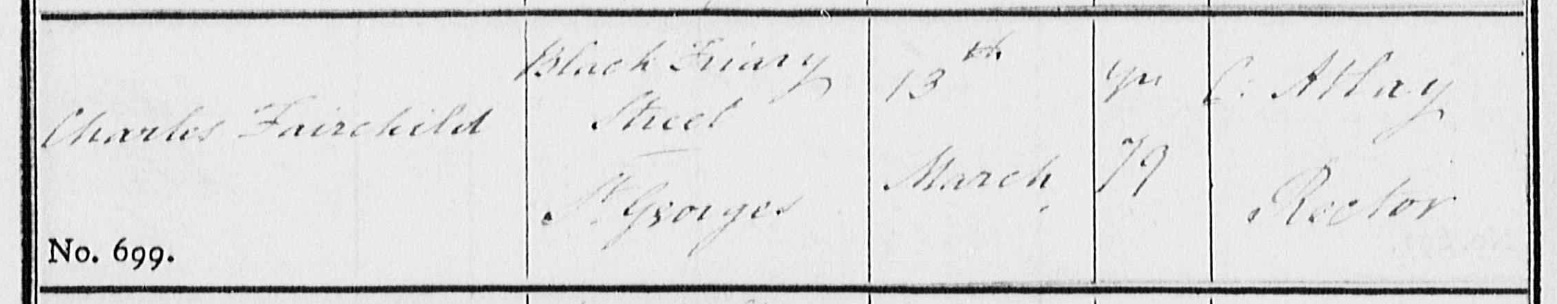 Charles Fairchild
No. 699.
Black Friary
Street
St. Georges
13th
March
yrs
79
C. Atlay
Rector